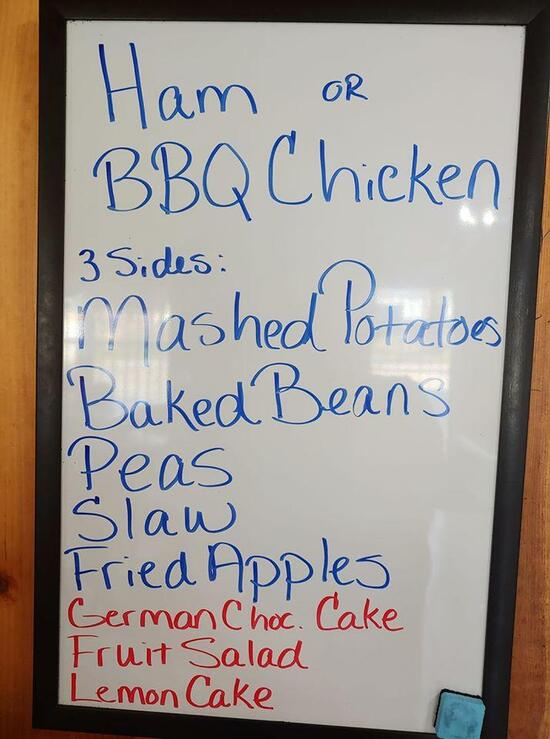 Ham OR
BBQ Chicken
3 Sides:
Mashed Potatoes
Baked Beans
Peas
Slaw
Fried Apples
German Choc. Cake
Fruit Salad
Lemon Cake